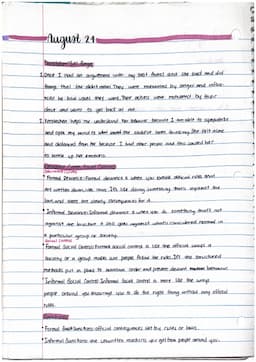 August 29
1. Once I had an argument with my best friend and she said and did
things that she didn't mean. They were motivated by anger and
told by bad words they were. Their actions were motivated by their
anger and want to get back at me.
2. Forgiveness helps me understand her behavior because I am able to sympathize
and open my mind to what could be. She felt alone
and distanced from me because I had other people and this caused her
to bottle up her emotions.
* Formal Deviance: Formal deviance is when you violate official rules that
are written down, like laws. It's like doing something that's against the
law, and there are clearly consequences for it.
* Informal Deviance: Informal deviance is when you do something that's not
against the law, but it still goes against what's considered normal in
a particular group or society.
* Formal Social Control: Formal social control is like the official ways a
society or a group makes sure people follow the rules. It's the structured
methods put in place to maintain order and prevent deviant behavior.
* Informal Social Control: Informal social control is more like the ways
people around you encourage you to do the right thing without any official
rules.
* Formal Sanctions: official consequences set by rules or laws.
* Informal Sanctions: the unwritten reactions you get from people around you.